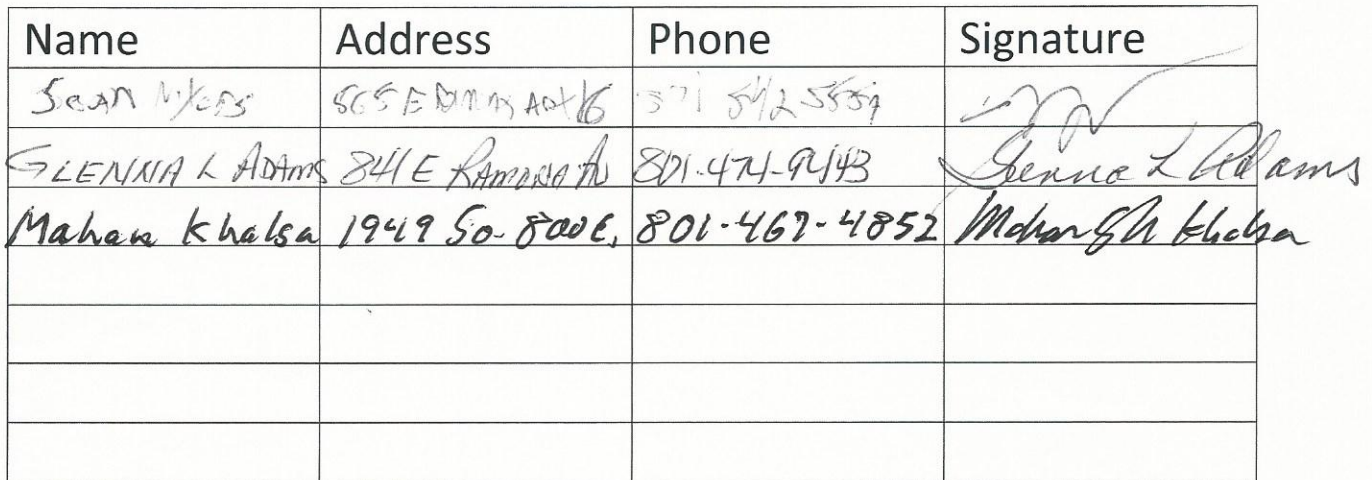 Name Address Phone Signature
Sean 565 E 542
GLENNA L ADAMS 841 E RAMONA AV 801-474-9443 Glenna L Adams
Mahan Khalsa 1949 So. 800 E, 801-467-4852 Mahan Khalsa